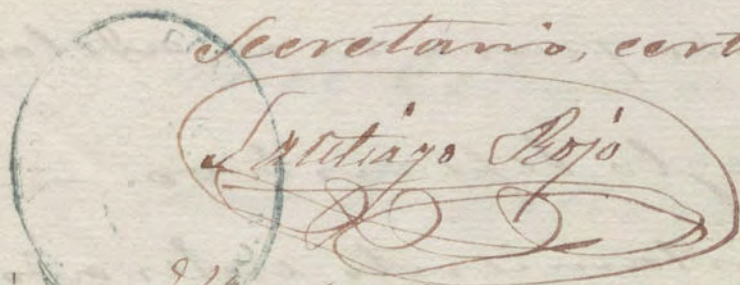 Secretario, cert
Santiago Rojo